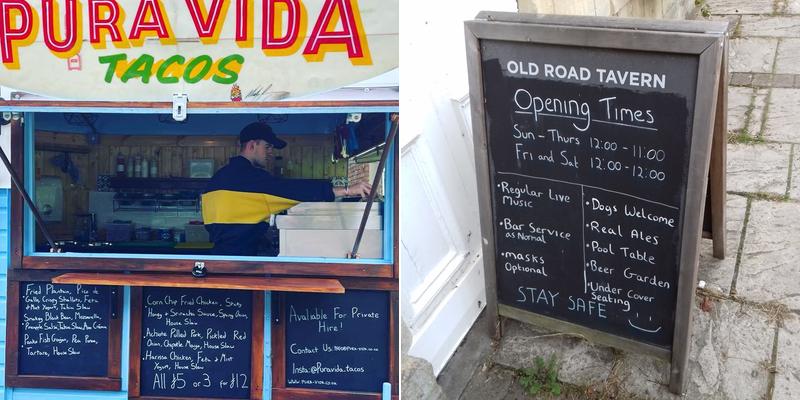 PURA VIDA
TACOS
Fried Plantain, Pico de
Gallo, Crispy Shallots, Feta
& Mint Yogurt, Tajin Slaw
Smokey Black Bean, Mozzarella,
Pineapple Salsa, Tajin Slaw, Ava Crema
Panko Fish Goujon, Pea Puree,
Tartare, House Slaw
Corn Chip Fried Chicken, Sticky
Honey + Sriracha Sauce, Spring Onion,
House Slaw
Achiote Pulled Pork, Pickled Red
Onion, Chipotle Mayo, House Slaw
Harissa Chicken, Feta & Mint
Yogurt, House Slaw
All £5 or 3 for £12
Available For Private
Hire!
Contact Us:
Insta: @Puravida.tacos
OLD ROAD TAVERN
Opening Times
Sun - Thurs 12:00 - 11:00
Fri and Sat 12:00 - 12:00
• Regular Live
Music
• Bar Service
as Normal
• masks
Optional
• Dogs Welcome
• Real Ales
• Pool Table
• Beer Garden
• Under Cover
Seating
STAY SAFE